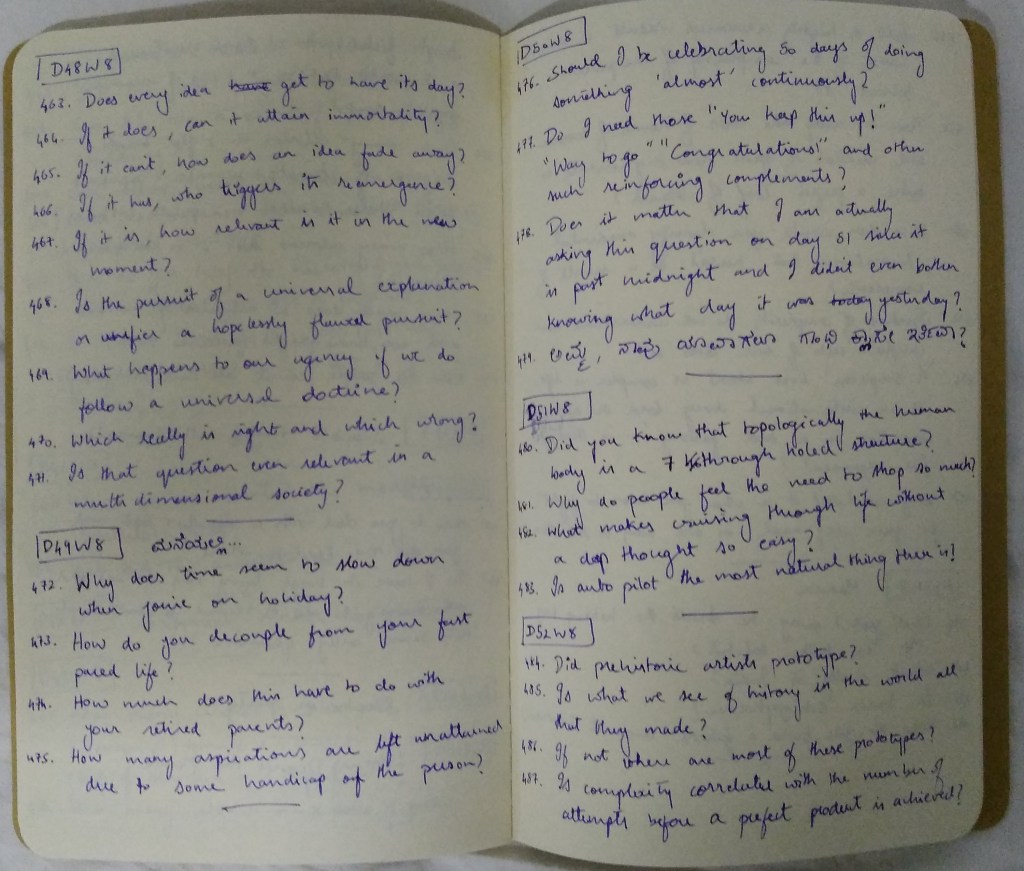 D48W8
463. Does every idea have get to have its day?
464. If it does, can it attain immortality?
465. If it can't, how does an idea fade away?
466. If it has, who triggers its reemergence?
467. If it is, how relevant is it in the new
moment?
468. Is the pursuit of a universal explanation
or unifier a hopelessly flawed pursuit?
469. What happens to our agency if we do
follow a universal doctrine?
470. Which really is right and which wrong?
471. Is that question even relevant in a
multi dimensional society?
D49W8
472. Why does time seem to slow down
when you're on holiday?
473. How do you decouple from your fast
paced life?
474. How much does this have to do with
your retired parents?
475. How many aspirations are left unattained
due to some handicap of the person?
D50W8
476. Should I be celebrating 50 days of doing
something 'almost' continuously?
477. Do I need those "You keep this up!"
"Way to go" "Congratulations!" and other
such reinforcing complements?
478. Does it matter that I am actually
asking this question on day 51 since it
is past midnight and I didn't even bother
knowing what day it was today yesterday?
479. ಅಮ್ಮ, ನಾವು ಯಾವಾಗಲೂ ಗಾಂಧಿ ಕ್ಲಾಸೇ ಇರ್ತೀವಾ?
D51W8
480. Did you know that topologically the human
body is a 7 through holed structure?
481. Why do people feel the need to shop so much?
482. What makes cruising through life without
a deep thought so easy?
483. Is auto pilot the most natural thing there is!
D52W8
484. Did prehistoric artists prototype?
485. Is what we see of history in the world all
that they made?
486. If not where are most of these prototypes?
487. Is complexity correlated with the number of
attempts before a perfect product is achieved?